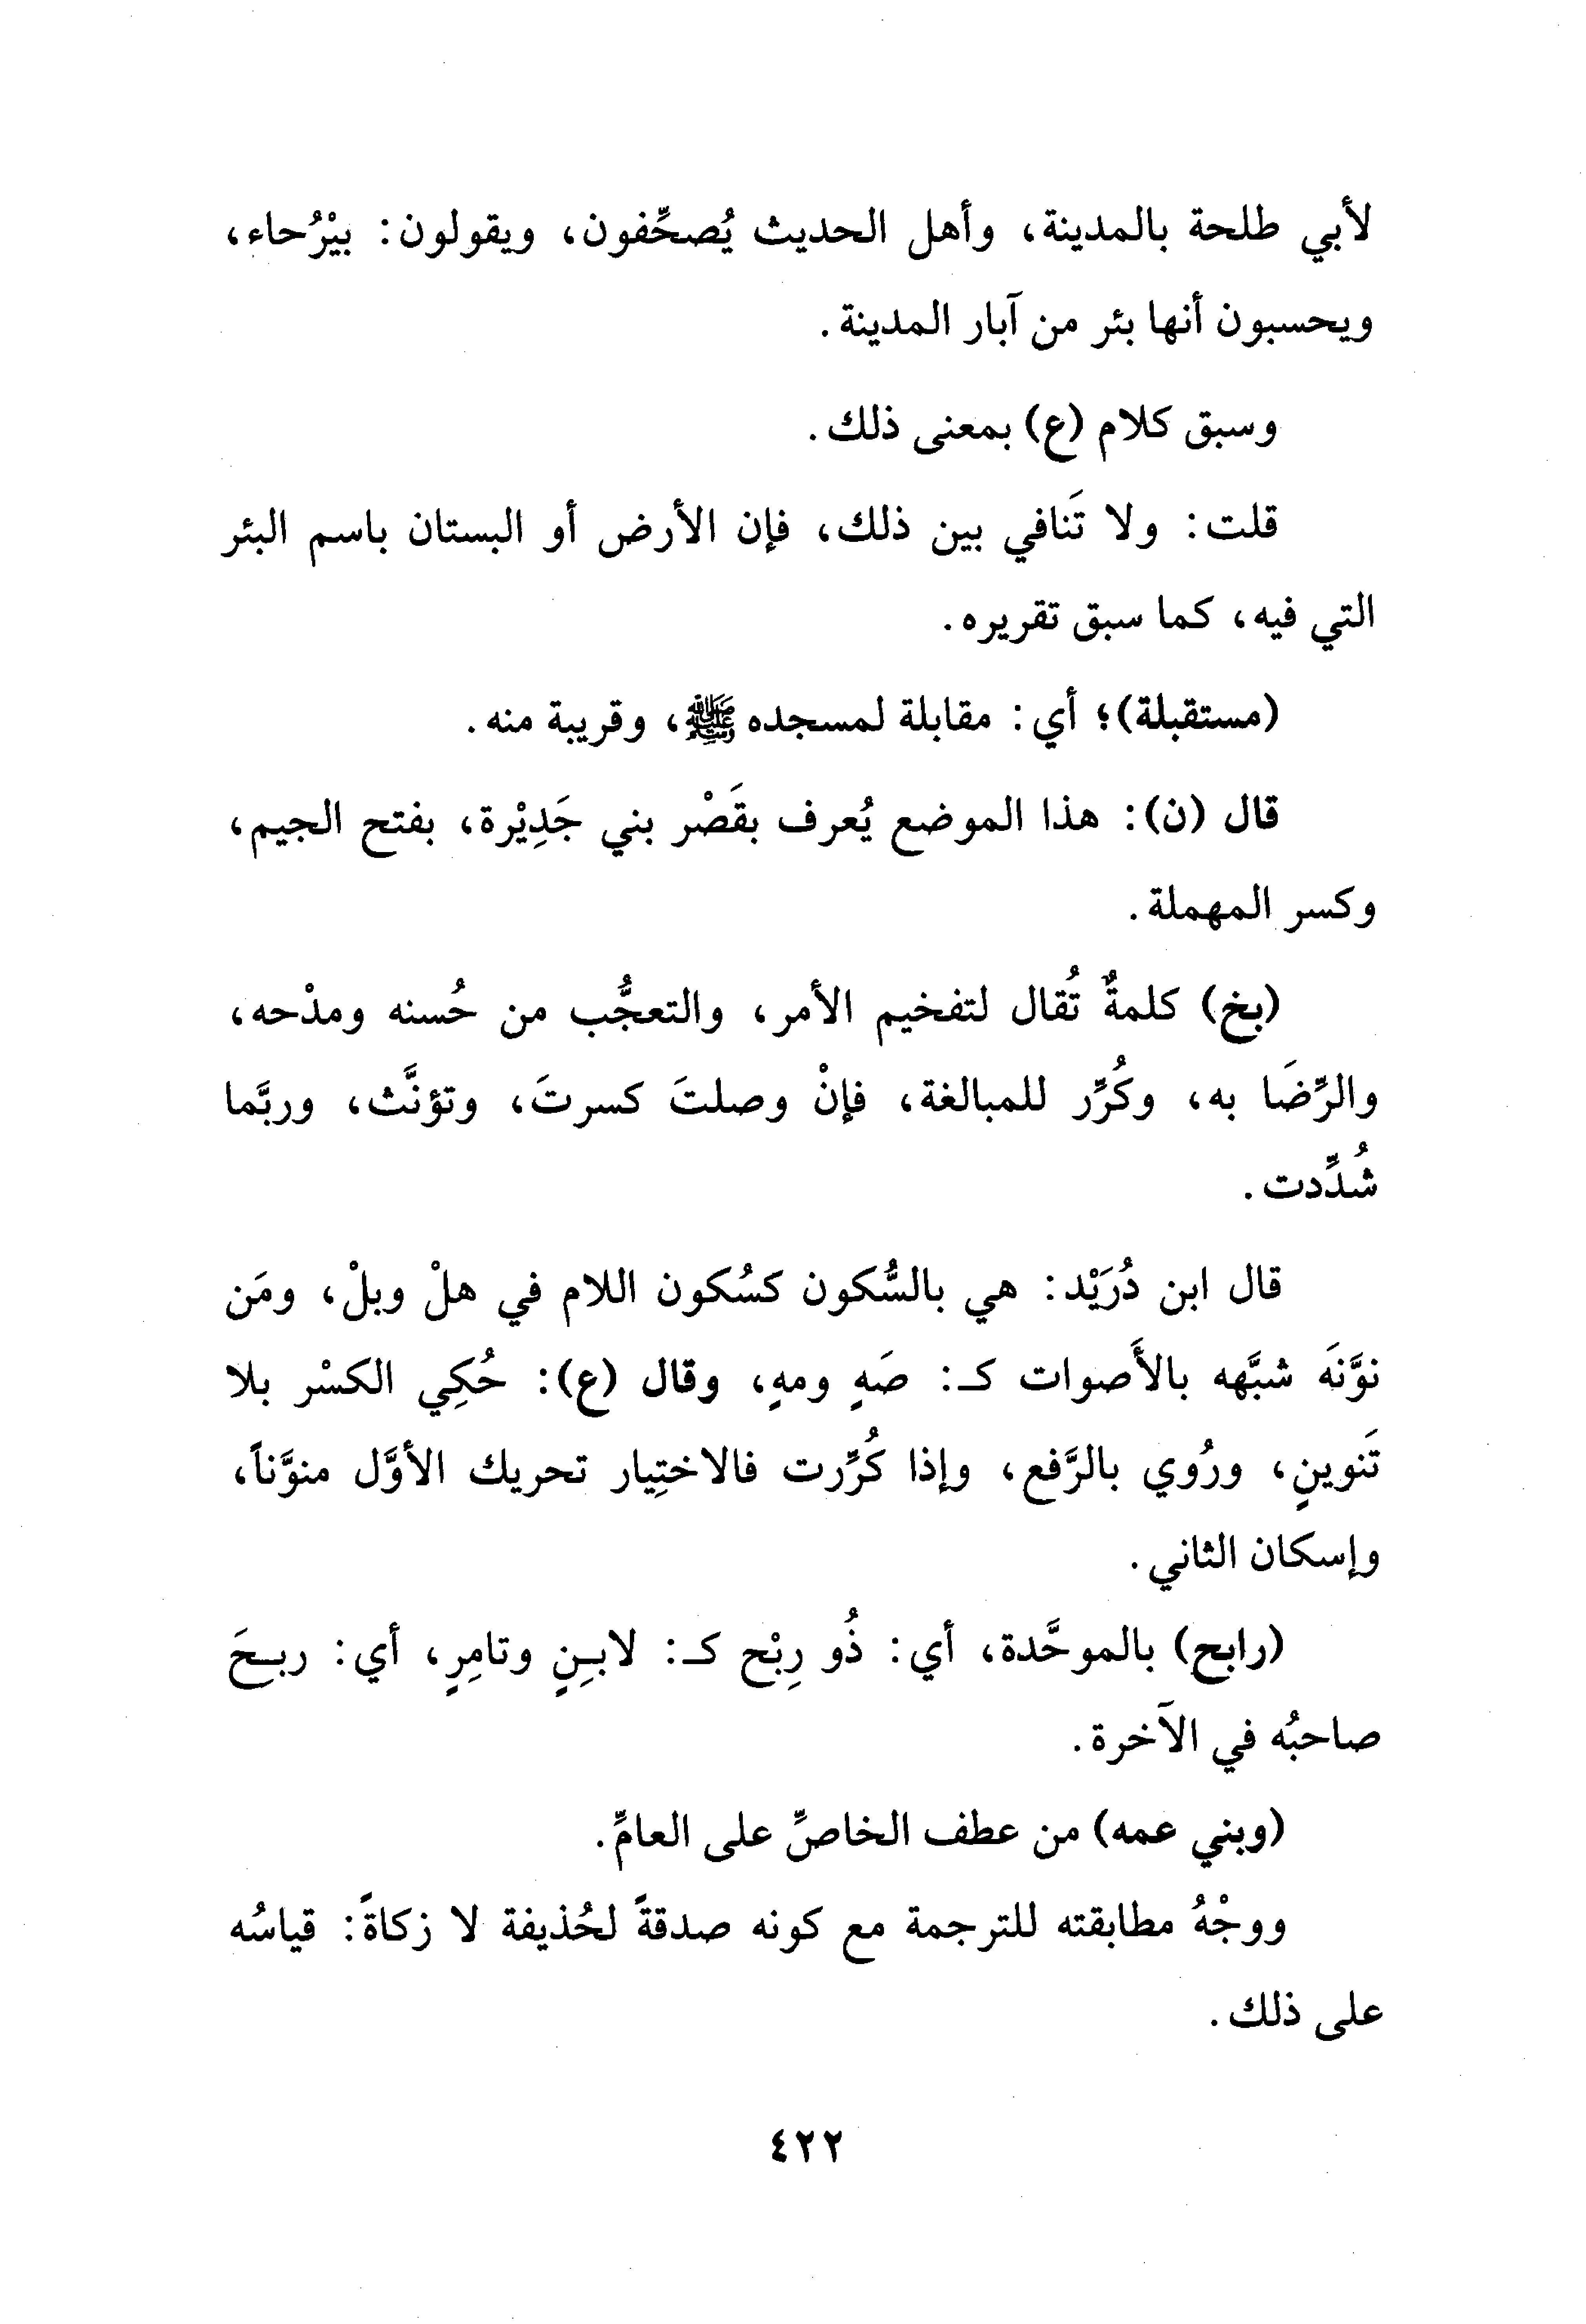 لأبي طلحة بالمدينة، وأهل الحديث يُصحِّفون، ويقولون: بيْرُحاء،
ويحسبون أنها بئر من آبار المدينة.
وسبق كلام (ع) بمعنى ذلك.
قلت: ولا تَنافي بين ذلك، فإن الأرض أو البستان باسم البئر
التي فيه، كما سبق تقريره.
(مستقبلة)؛ أي: مقابلة لمسجده ﷺ، وقريبة منه.
قال (ن): هذا الموضع يُعرف بقَصْر بني جَدِيْرة، بفتح الجيم،
وكسر المهملة.
(بخ) كلمةٌ تُقال لتفخيم الأمر، والتعجُّب من حُسنه ومدْحه،
والرِّضَا به، وكُرِّر للمبالغة، فإنْ وصلتَ كسرتَ، وتؤنَّث، وربَّما
شُدِّدت.
قال ابن دُرَيْد: هي بالسُّكون كسُكون اللام في هلْ وبلْ، ومَن
نوَّنَه شبَّهه بالأَصوات كـ: صَهٍ ومهٍ، وقال (ع): حُكِي الكسْر بلا
تَنوينٍ، ورُوي بالرَّفع، وإذا كُرِّرت فالاختِيار تحريك الأوَّل منوَّناً،
وإسكان الثاني.
(رابح) بالموحَّدة، أي: ذُو رِبْح كـ: لابـِنٍ وتامِرٍ، أي: ربـحَ
صاحبُه في الآخرة.
(وبني عمه) من عطف الخاصِّ على العامِّ.
ووجْهُ مطابقته للترجمة مع كونه صدقةً لحُذيفة لا زكاةً: قياسُه
على ذلك.
٤٢٢